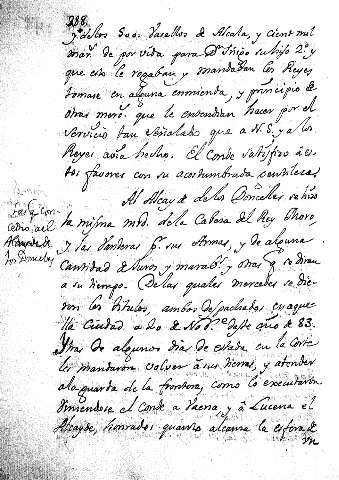 288.
y de los 300. Vasallos de Alcala, y cient mil
mar.s de por vida para D.n Iñigo su hijo 2.º y
que esto le rogaban y mandaban los Reyes
tomase en alguna enmienda, y principio de
otras merc.s que le entendian hacer por el
servicio tan señalado que a N. S. y a los
Reyes avia hecho. El Conde satisfizo à es-
tos favores con su acostumbrada gentileza.
Al Alcayde de los Donceles se hizo
la misma mrd. de la Cabeza del Rey Moro,
y las Vanderas p.a sus Armas, y de alguna
cantidad de juros y marab.s y otras q.e se diran
a su tiempo. De las quales mercedes se die-
ron los titulos, ambos despachados en aque-
lla Ciudad à 20 de Nob.e deste año de 83.
Tras de algunos dias de estada en la Corte
les mandaron volver à sus tierras, y atender
à la guarda de la frontera, como lo executaron
viniendose el Conde a Vaena, y à Lucena el
Alcayde, honrados quanto alcanza la esfera de
un
Las q.e con
cedio, a el
Alcayde de
los Donceles